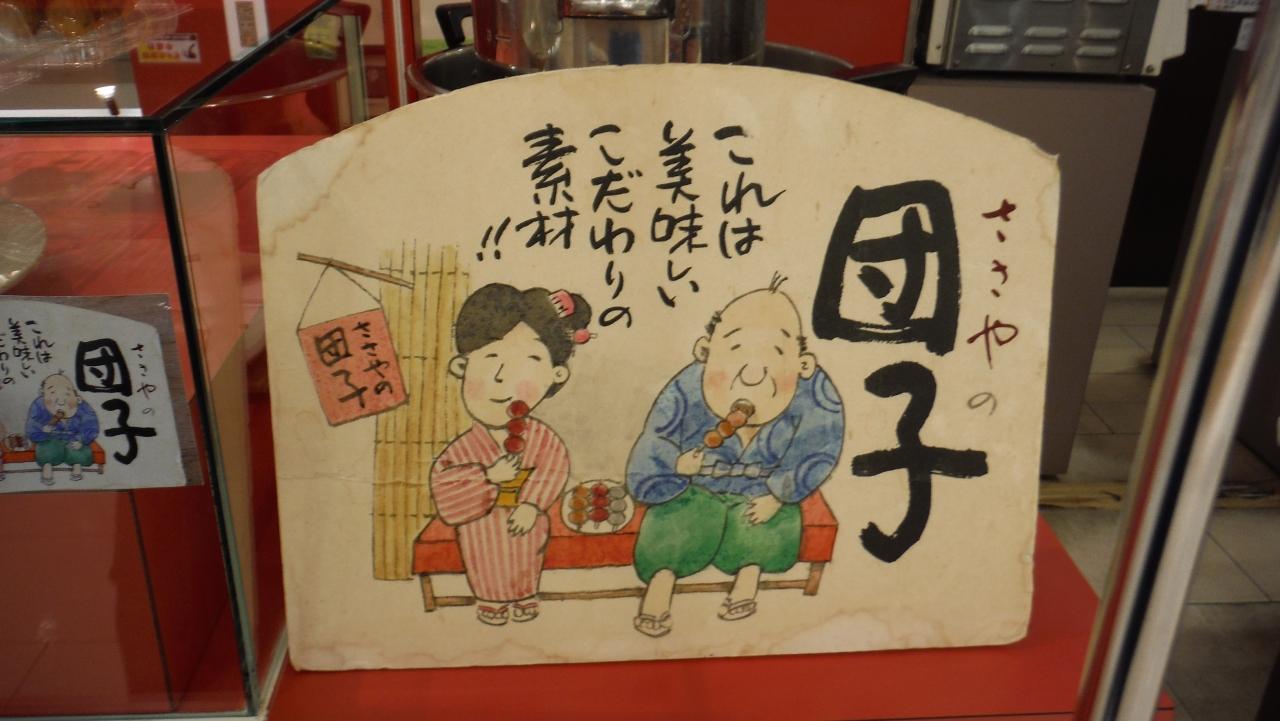 ささやの
団子
これは
美味しい
こだわりの
素材
!!
ささやの
団子
ささやの
団子
これは
美味しい